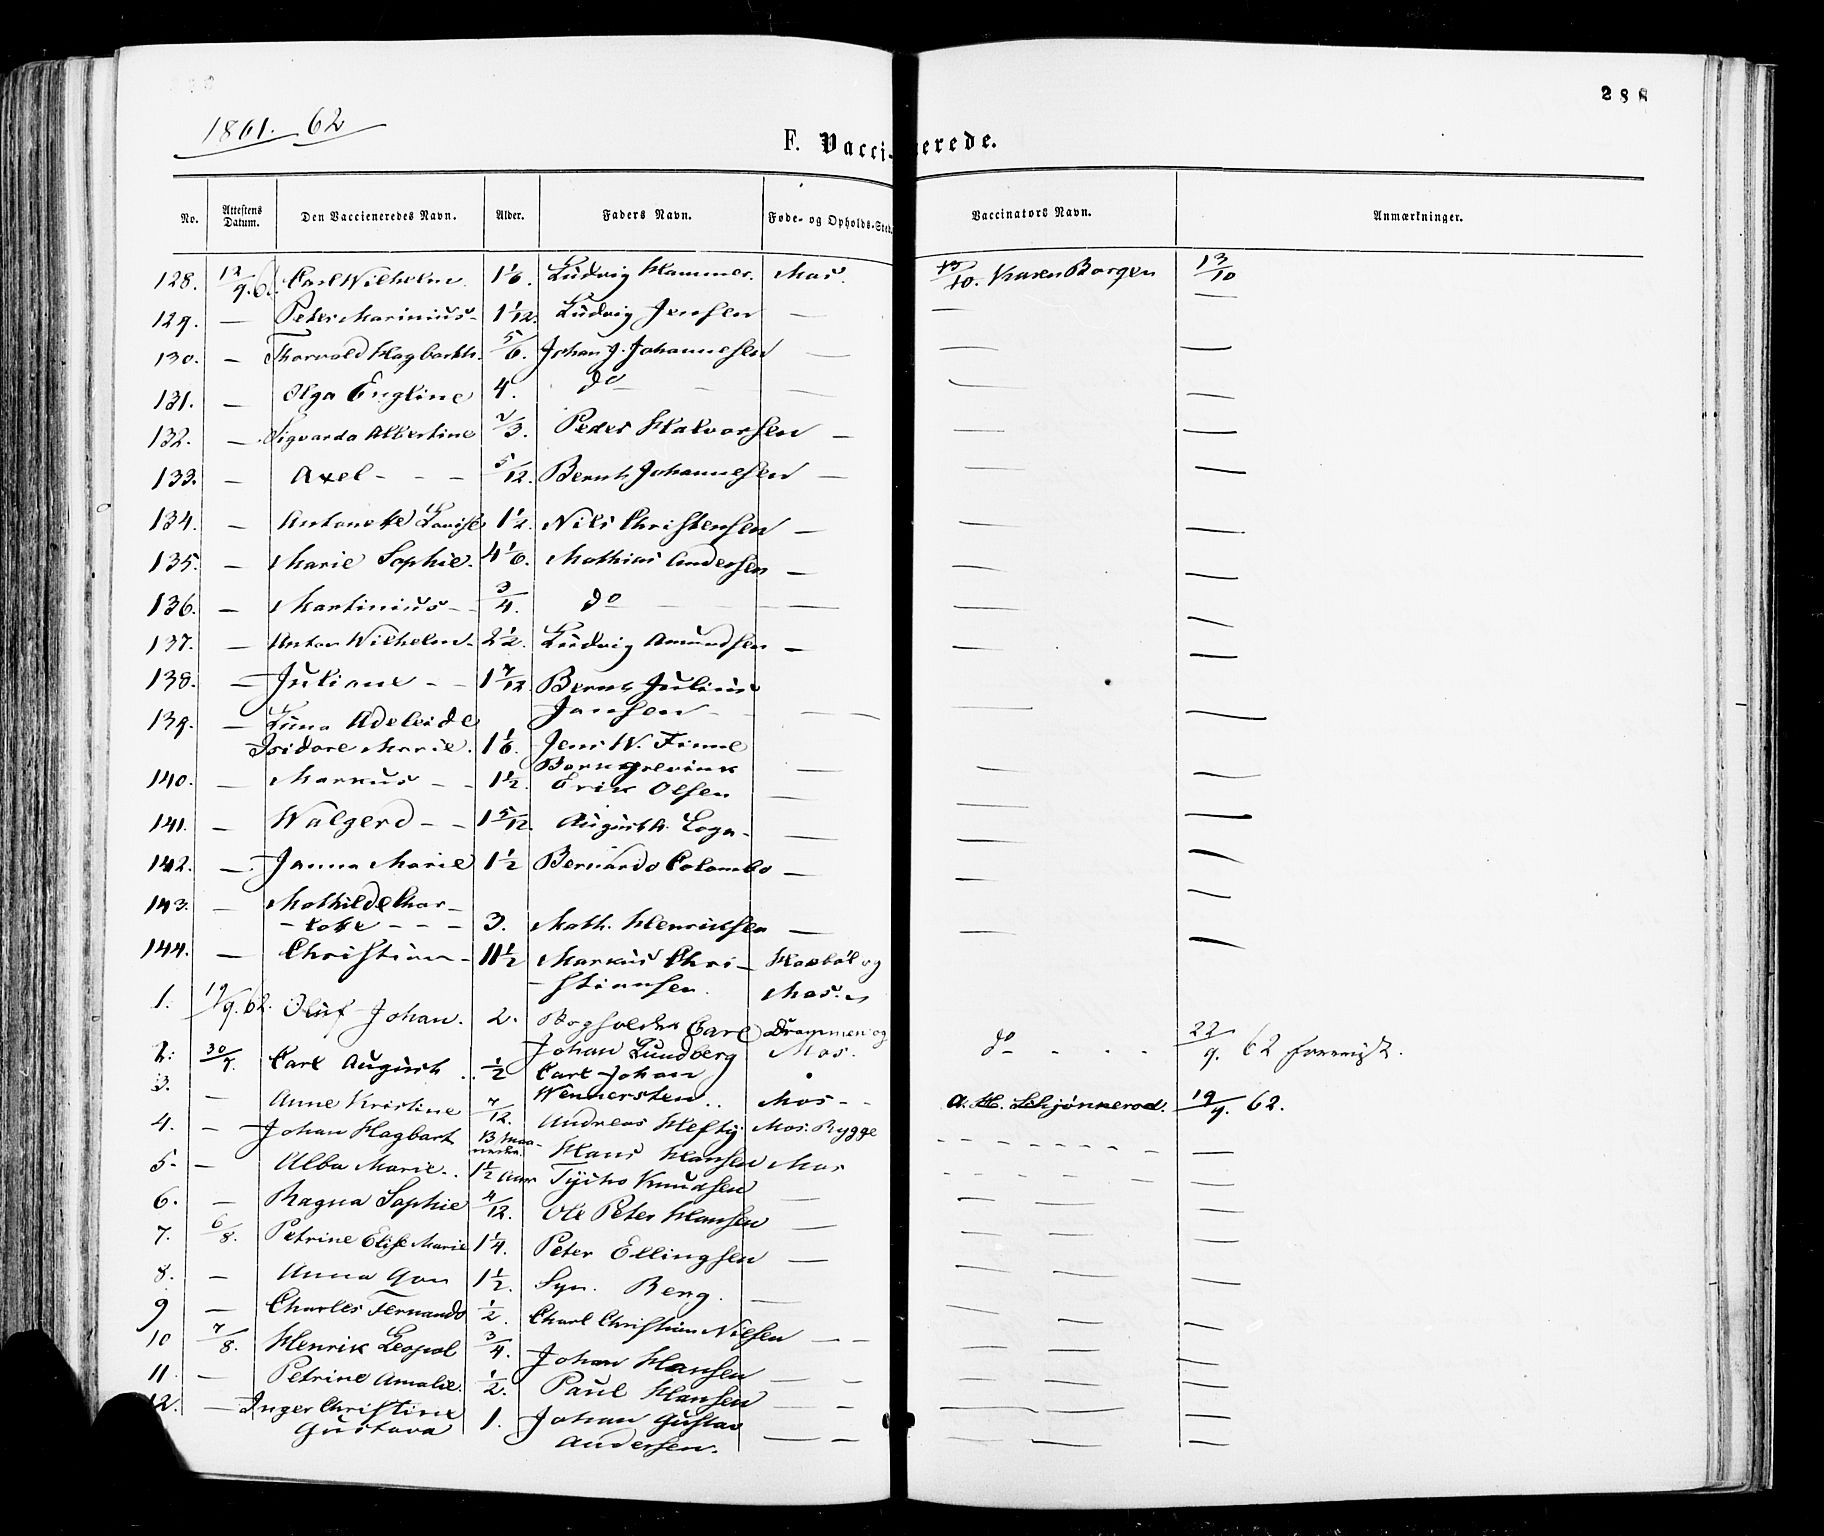 288
1861. 62
F. Vacci-nerede.
No. Attestens Datum. Den Vaccieneredes Navn. Alder. Faders Navn. Føde- og Opholds-Sted. Vaccinators Navn. Anmærkninger.
128. 12/9.61. Carl Wilhelm. 1 1/6. Ludvig Hammer. Mos. 13/10. Karen Borgen 13/10
129. — Peder Marinius - 1 1/12. Ludvig Jensen — — —
130. — Thorvald Hagbarth. 5/6. Johan J. Johannesen — — —
131. — Olga Engline 4. do — — — —
132. — Sigvarda Albertine 2/3. Peder Halvorsen — — —
133. — Axel - - - 5/12. Bernt Johannesen — — —
134. — Antonette Lovise 1 1/2. Nils Christensen — — —
135. — Marie Sophie. 4 1/6. Mathias Andersen — — —
136. — Martinius - - 3/4. do — — — —
137. — Anton Wilhelm. 2 1/2. Ludvig Amundsen — — —
138. — Juliane - - 1 7/12. Bernt Julius — —
Jansen -
139. — Luna Adeleide — — —
Isidore Marie. 1 1/6. Jens W. Finne
Borchgrevink —
140. — Markus - - 1 1/2. Erik Olsen — — —
141. — Walgerd - - 1 5/12. August H. Loga - — — —
142. — Janna Marie 1 1/2 Bernardo Colombo — — —
143. — Mathilde Char-
- lotte - - - 3. Math. Henriksen — — —
144. — Christian - 11 1/2 Markus Chri- Haxbøl og — —
- stiansen. Mos.
1. 19/9. 62. Oluf Johan. 2. Bogholder Carl Drammen og
Johan Lundberg Mos. do - . . . 22/9. 62
2. 30/7. Carl August . 1/2 Carl Johan
Wennersten .. Mos - - A. H. Schjønnerød. 19/9. 62.
3. — Anne Kristine 7/12. Andreas Hefty Mos. Rygge - - - - - —
4. — Johan Hagbart 13 Maaneder. Hans Hansen Mos - - - - - —
5. - — Alba Marie . . 1 1/2 Aar Tycho Knudsen — — — —
6. — Ragna Sophie 4/12. Ole Peter Hansen — — — —
7. 6/8. Petrine Elise Marie 1 1/4. Peter Ellingsen — — — —
8. — Anna Gon 1 1/2. Syn. Berg. — — — —
9 — Charles Fernando 1/2. Charl Christian Nilsen — - — — —
10 7/8. Henrik Leopol 3/4. Johan Hansen — - — — —
11. — Petrine Amalie. 1/2. Paul Hansen - — — —
12. — Inger Christine 1. Johan Gustav
Gustava Andersen. — - — — —